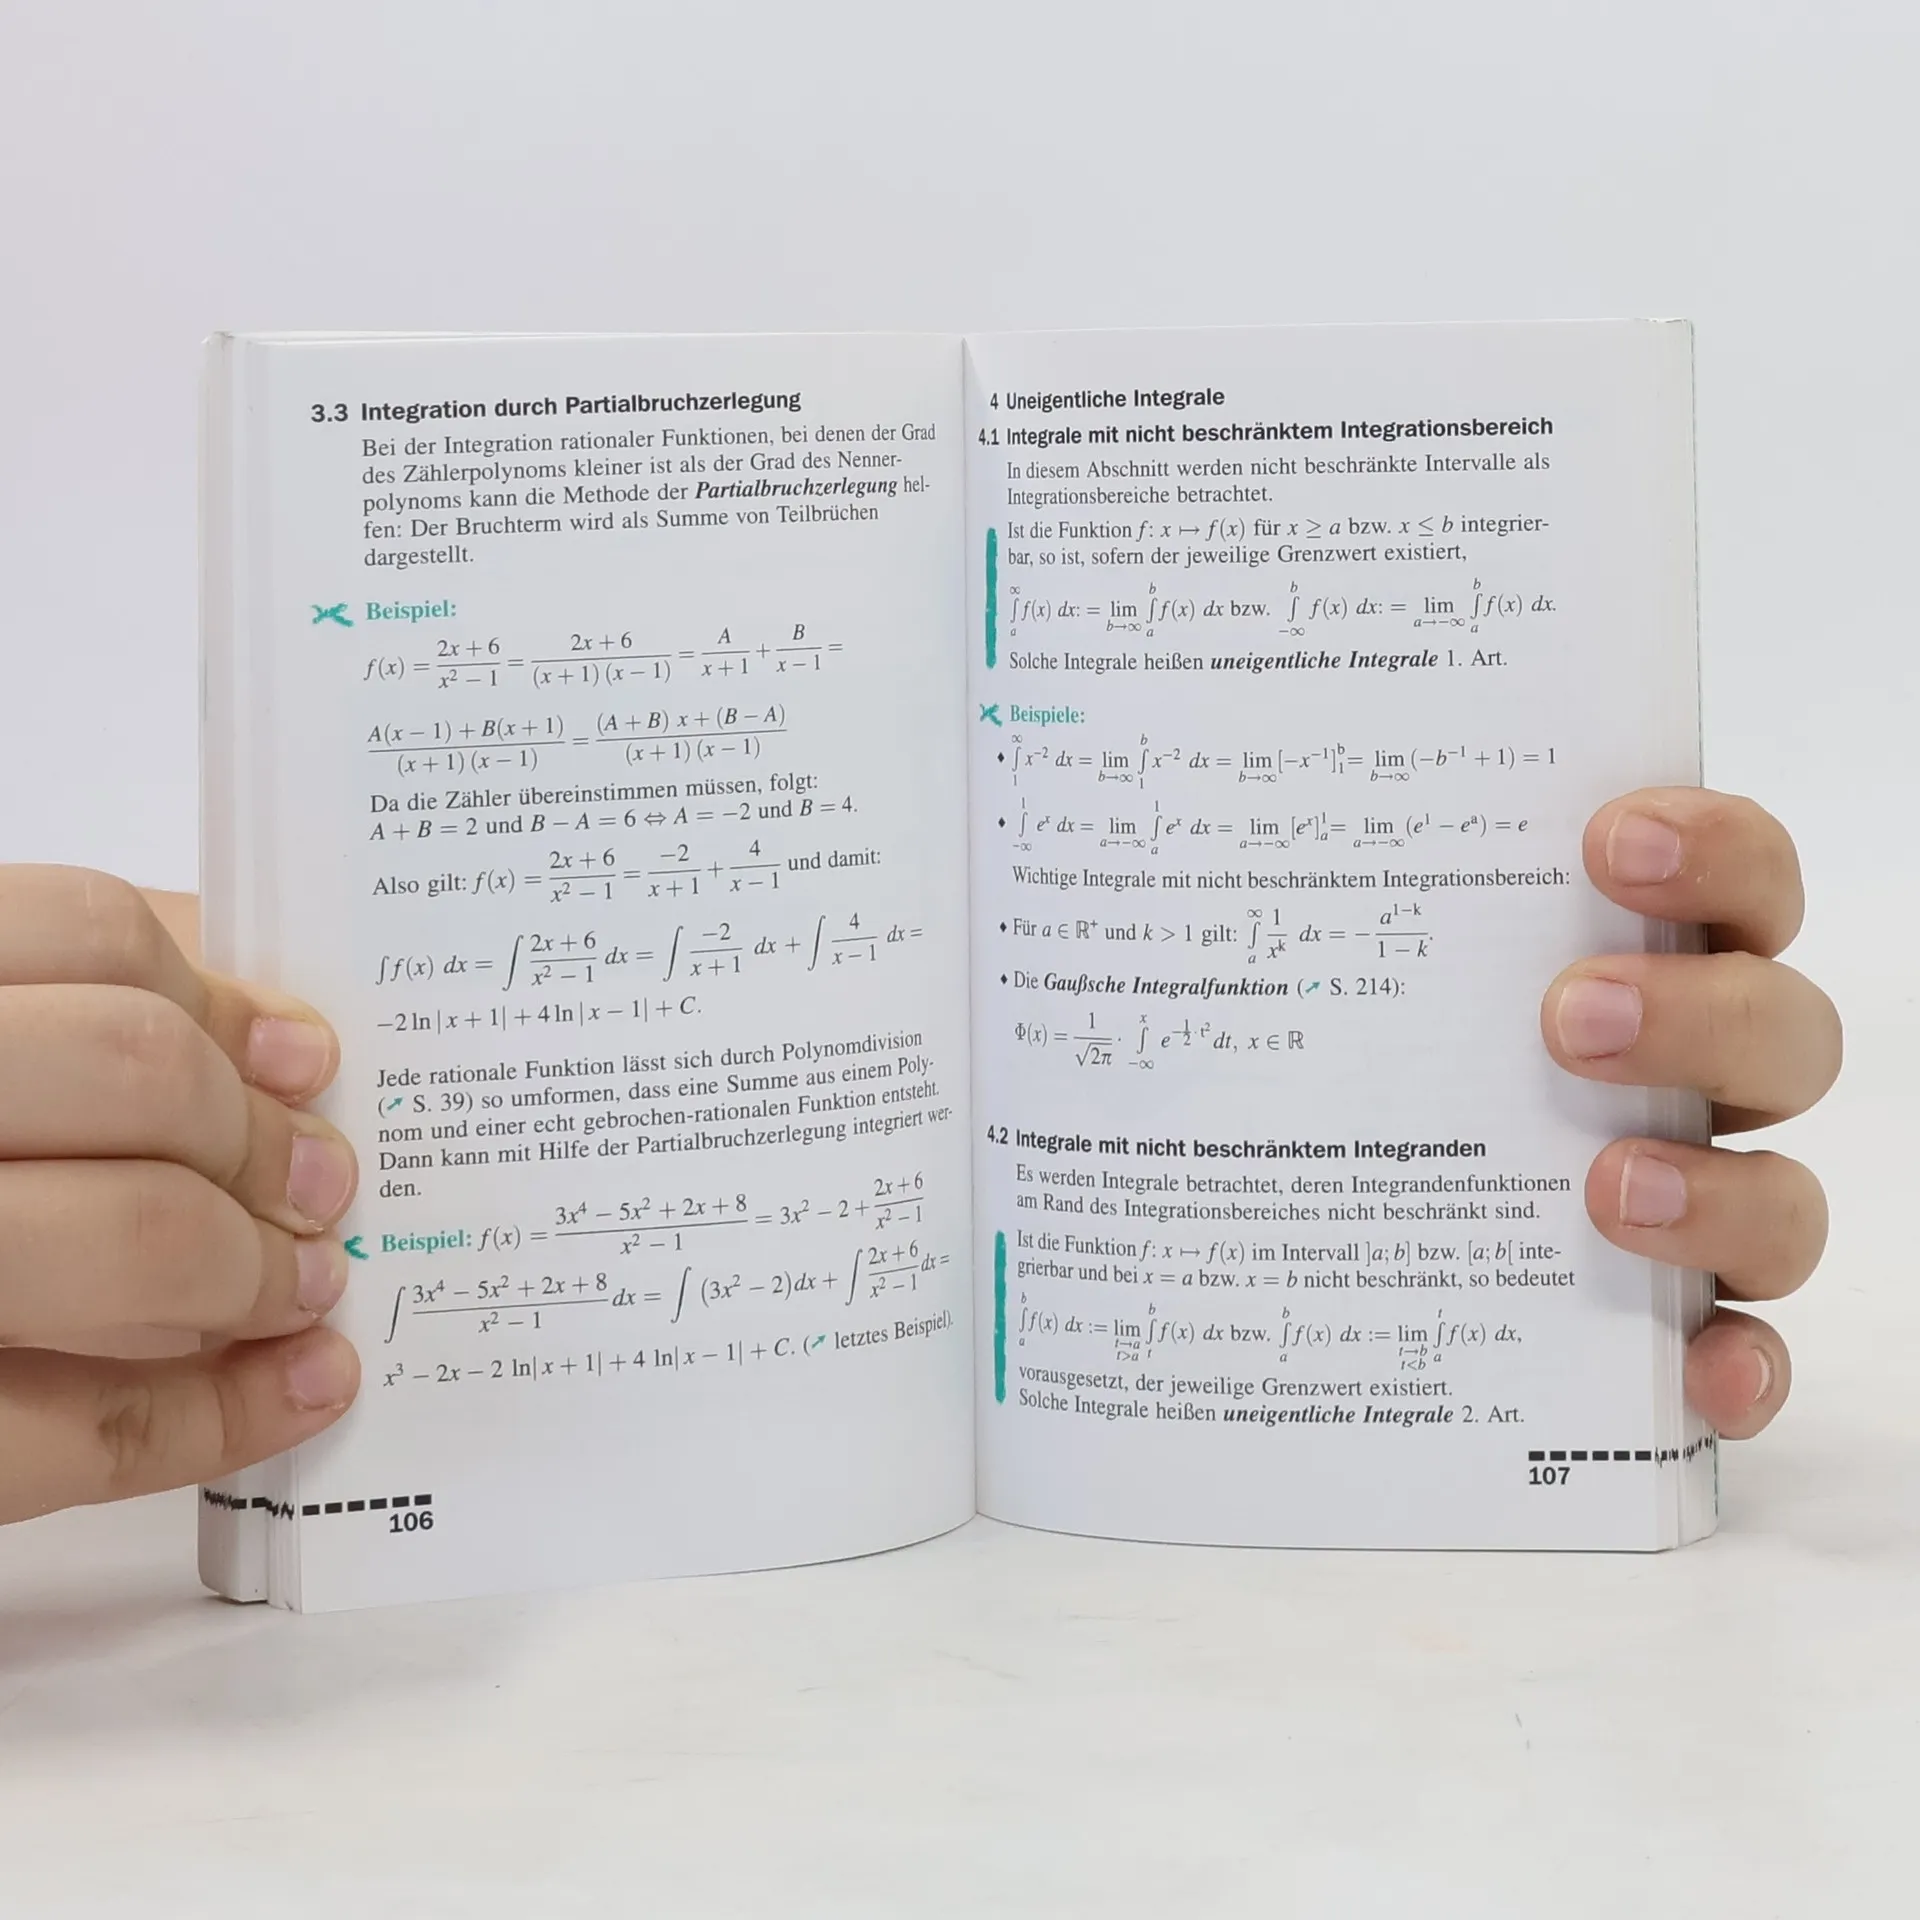 3.3 Integration durch Partialbruchzerlegung
Bei der Integration rationaler Funktionen, bei denen der Grad
des Zählerpolynoms kleiner ist als der Grad des Nenner-
polynoms kann die Methode der Partialbruchzerlegung hel-
fen: Der Bruchterm wird als Summe von Teilbrüchen
dargestellt.
Beispiel:
f(x) = \frac{2x + 6}{x² − 1} = \frac{2x + 6}{(x + 1)(x − 1)} = \frac{A}{x + 1} + \frac{B}{x − 1} =
\frac{A(x − 1) + B(x + 1)}{(x + 1)(x − 1)} = \frac{(A + B) x + (B − A)}{(x + 1)(x − 1)}
Da die Zähler übereinstimmen müssen, folgt:
A + B = 2 und B − A = 6 ⇔ A = −2 und B = 4.
Also gilt: f(x) = \frac{2x + 6}{x² − 1} = \frac{−2}{x + 1} + \frac{4}{x − 1} und damit:
∫f(x) dx = ∫ \frac{2x + 6}{x² − 1} dx = ∫ \frac{−2}{x + 1} dx + ∫ \frac{4}{x − 1} dx =
−2 ln|x + 1| + 4 ln|x − 1| + C.
Jede rationale Funktion lässt sich durch Polynomdivision
(↗ S. 39) so umformen, dass eine Summe aus einem Poly-
nom und einer echt gebrochen-rationalen Funktion entsteht.
Dann kann mit Hilfe der Partialbruchzerlegung integriert wer-
den.
Beispiel: f(x) = \frac{3x⁴ − 5x² + 2x + 8}{x² − 1} = 3x² − 2 + \frac{2x + 6}{x² − 1}
∫ \frac{3x⁴ − 5x² + 2x + 8}{x² − 1} dx = ∫ (3x² − 2)dx + ∫ \frac{2x + 6}{x² − 1} dx =
x³ − 2x − 2 ln|x + 1| + 4 ln|x − 1| + C. (↗ letztes Beispiel).
106
4 Uneigentliche Integrale
4.1 Integrale mit nicht beschränktem Integrationsbereich
In diesem Abschnitt werden nicht beschränkte Intervalle als
Integrationsbereiche betrachtet.
Ist die Funktion f: x ↦ f(x) für x ≥ a bzw. x ≤ b integrier-
bar, so ist, sofern der jeweilige Grenzwert existiert,
∫_{a}^{∞} f(x) dx: = lim_{b→∞} ∫_{a}^{b} f(x) dx bzw. ∫_{−∞}^{b} f(x) dx: = lim_{a→−∞} ∫_{a}^{b} f(x) dx.
Solche Integrale heißen uneigentliche Integrale 1. Art.
Beispiele:
♦ ∫_{1}^{∞} x^{−2} dx = lim_{b→∞} ∫_{1}^{b} x^{−2} dx = lim_{b→∞} [−x^{−1}]_{1}^{b} = lim_{b→∞} (−b^{−1} + 1) = 1
♦ ∫_{−∞}^{1} e^{x} dx = lim_{a→−∞} ∫_{a}^{1} e^{x} dx = lim_{a→−∞} [e^{x}]_{a}^{1} = lim_{a→−∞} (e^{1} − e^{a}) = e
Wichtige Integrale mit nicht beschränktem Integrationsbereich:
♦ Für a ∈ ℝ⁺ und k > 1 gilt: ∫_{a}^{∞} \frac{1}{x^{k}} dx = −\frac{a^{1−k}}{1 − k}.
♦ Die Gaußsche Integralfunktion (↗ S. 214):
Φ(x) = \frac{1}{√2π} · ∫_{−∞}^{x} e^{−\frac{1}{2}·t²} dt, x ∈ ℝ
4.2 Integrale mit nicht beschränktem Integranden
Es werden Integrale betrachtet, deren Integrandenfunktionen
am Rand des Integrationsbereiches nicht beschränkt sind.
Ist die Funktion f: x ↦ f(x) im Intervall ]a; b] bzw. [a; b[ inte-
grierbar und bei x = a bzw. x = b nicht beschränkt, so bedeutet
∫_{a}^{b} f(x) dx := lim_{t→a, t>a} ∫_{t}^{b} f(x) dx bzw. ∫_{a}^{b} f(x) dx := lim_{t→b, t<b} ∫_{a}^{t} f(x) dx,
vorausgesetzt, der jeweilige Grenzwert existiert.
Solche Integrale heißen uneigentliche Integrale 2. Art.
107